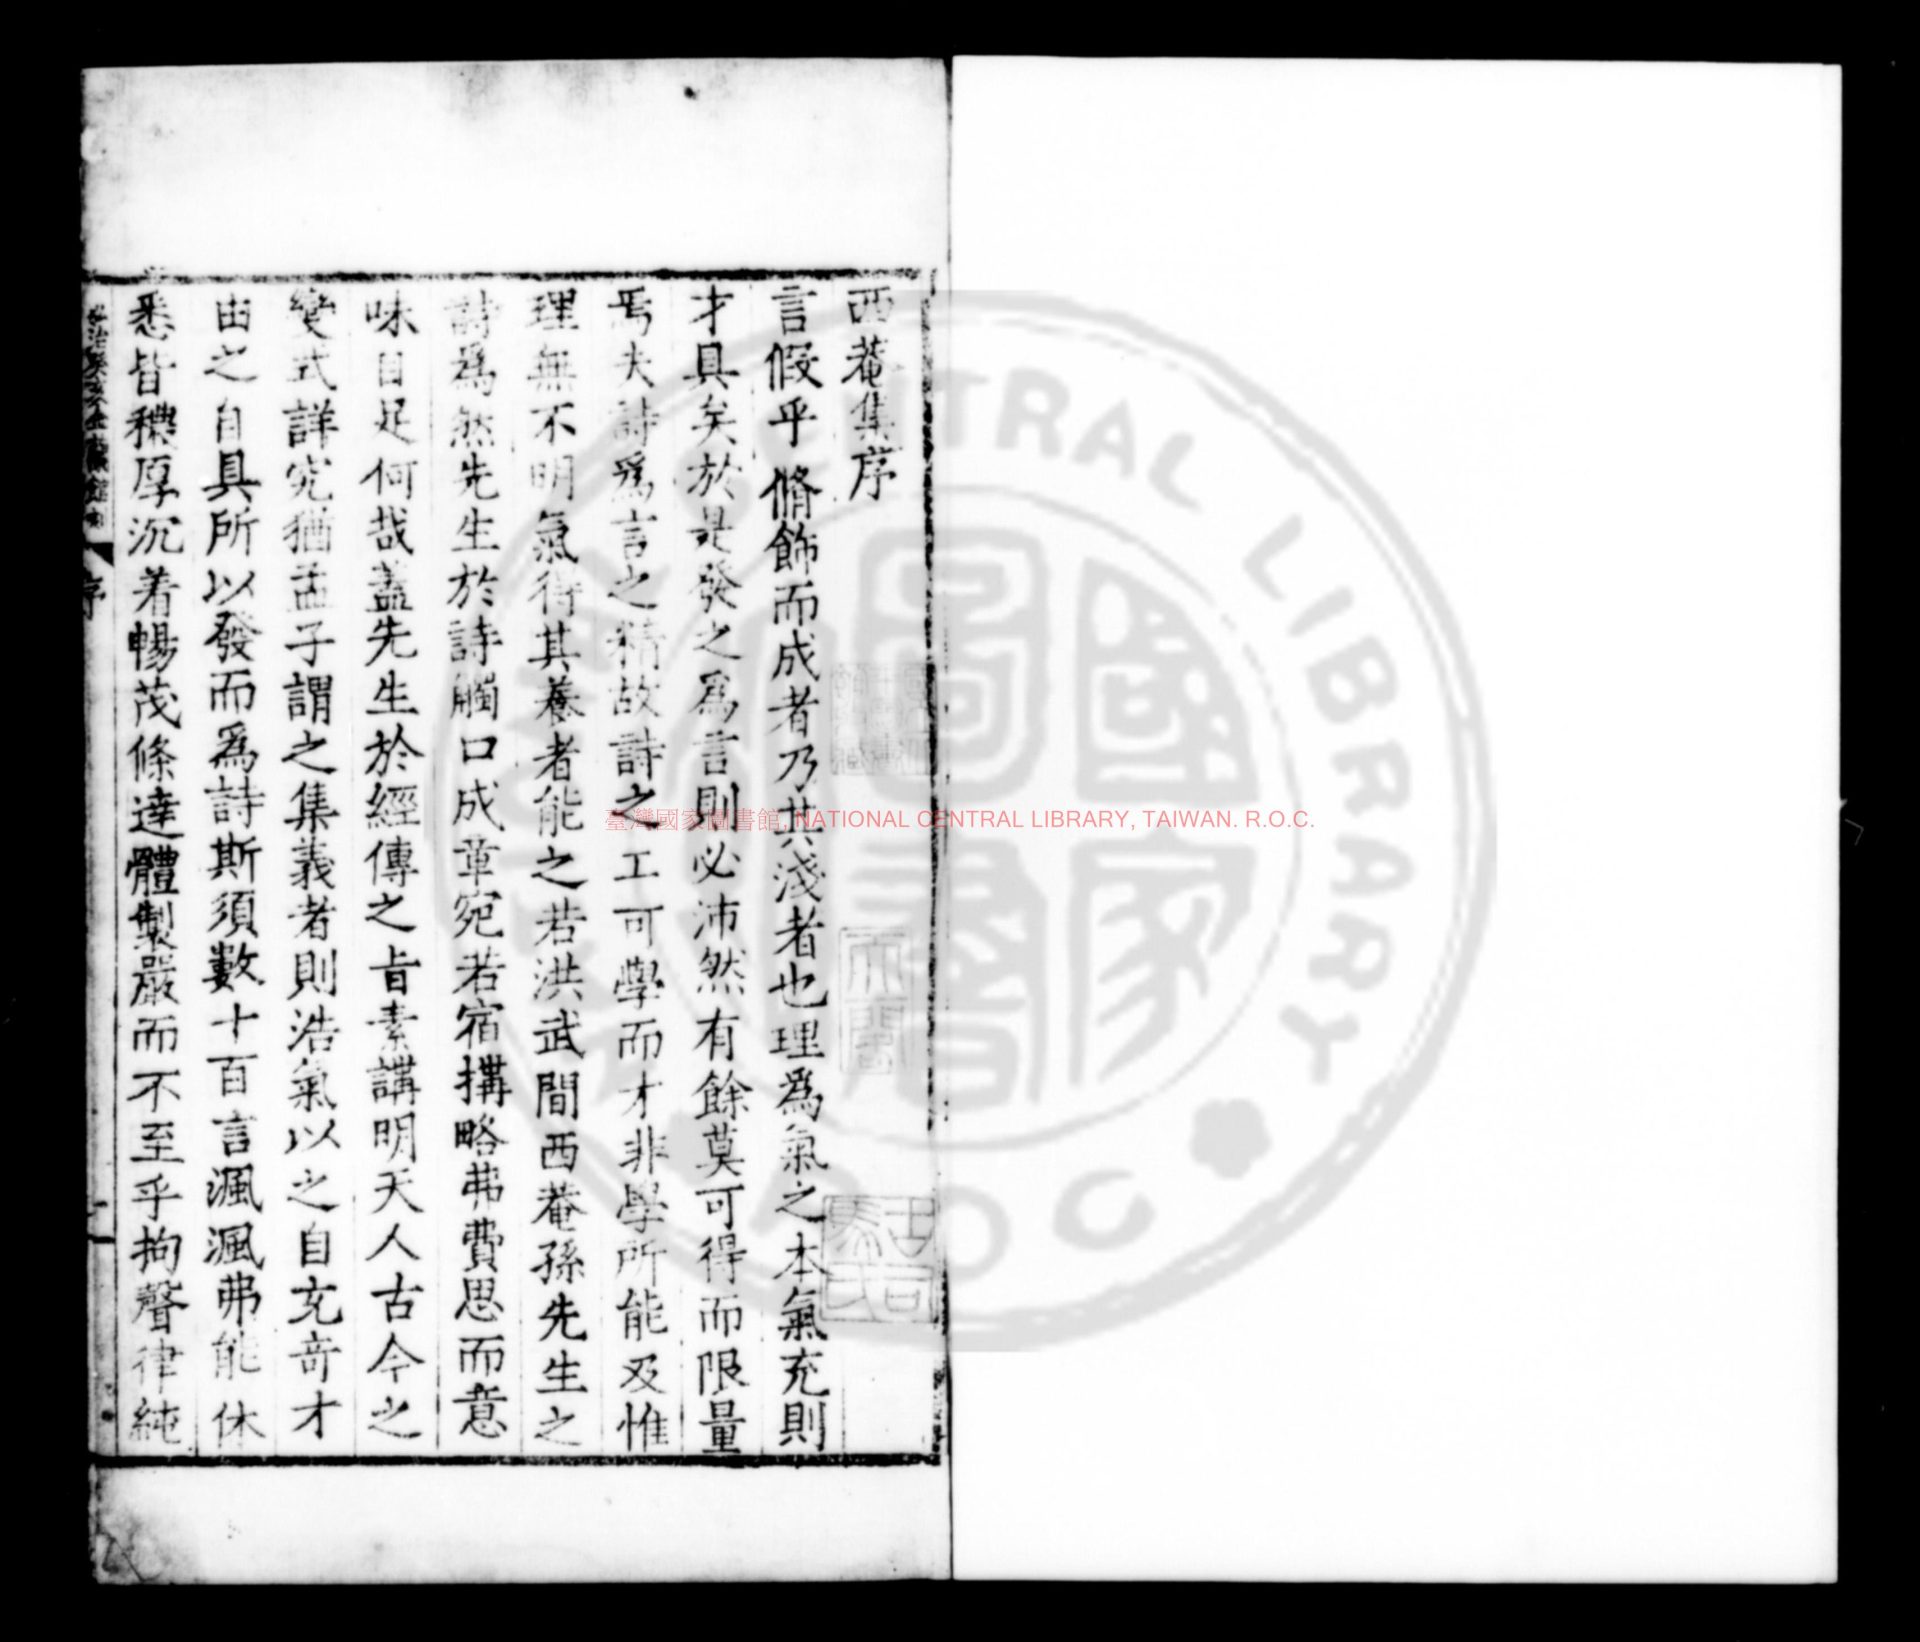 西菴集序
言假乎脩飾而成者乃其淺者也理爲氣之本氣充則
才具矣於是發之爲言則必沛然有餘莫可得而限量
焉夫詩爲言之精故詩之工可學而才非學所能及惟
理無不明氣得其養者能之若洪武間西菴孫先生之
詩爲然先生於詩觸口成章宛若宿搆略弗費思而意
味自足何哉蓋先生於經傳之旨素講明天人古今之
變式詳究猶孟子謂之集義者則浩氣以之自充奇才
由之自具所以發而爲詩斯須數十百言渢渢弗能休
悉皆穠厚沉着暢茂條達體製嚴而不至乎拘聲律純
弘治癸亥金蘭館刻
序
一
臺灣國家圖書館, NATIONAL CENTRAL LIBRARY, TAIWAN. R.O.C.
CENTRAL LIBRARY
R.O.C
國家圖書